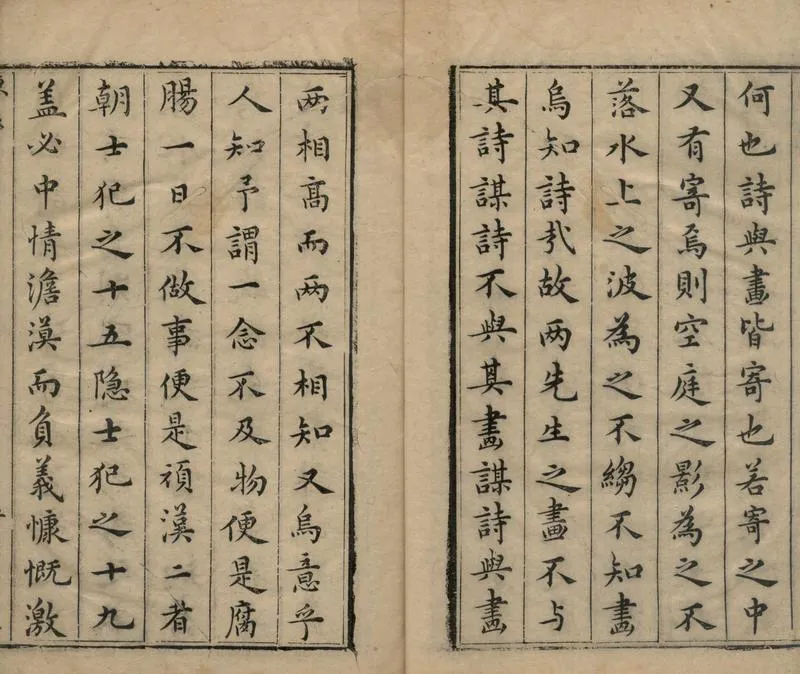 何也詩與畫皆寄也若寄之中
又有寄焉則空庭之影為之不
落水上之波為之不縐不知畫
烏知詩㢤故两先生之畫不与
其詩謀詩不與其畫謀詩與畫
两相髙而两不相知又烏意乎
人知予謂一念不及物便是腐
腸一日不做事便是頑漢二者
朝士犯之十五隐士犯之十九
盖必中情澹漠而負義慷慨激